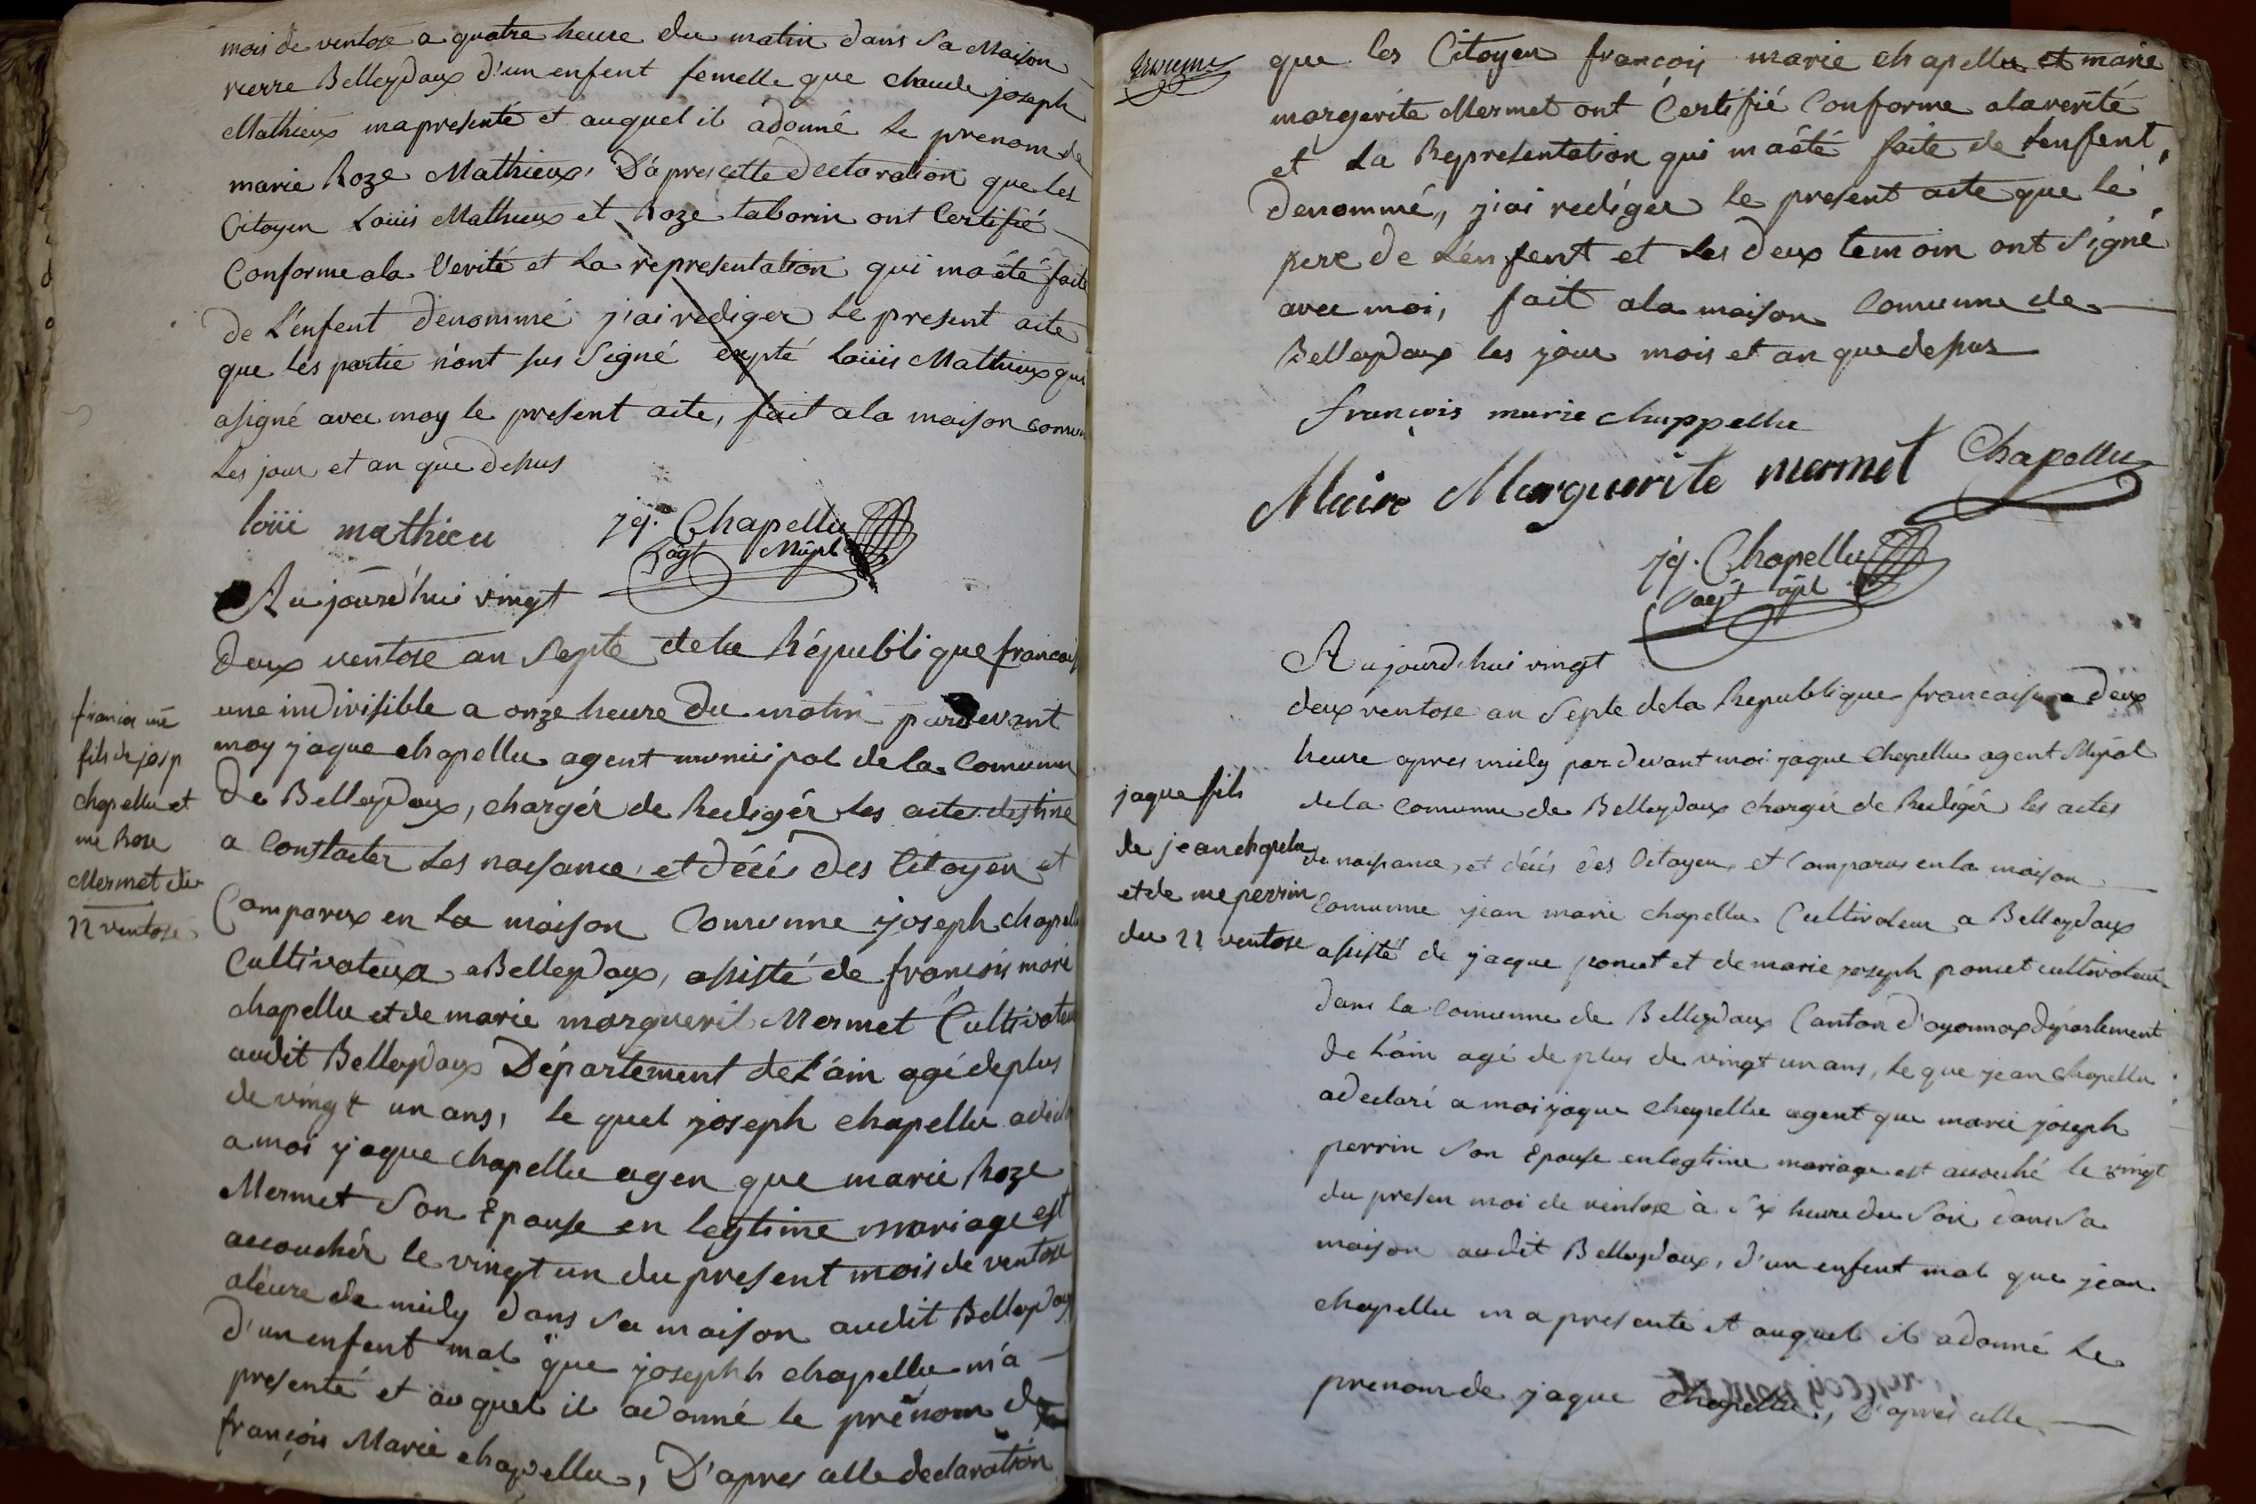 mois de ventose a quatre heure du matin dans sa Maison
rierre Belleydoux d'un enfent femelle que claude joseph
Mathieux mapresenté et auquel il adonné le prenom de
marie Roze Mathieux, D'apres cette declaration que les
Citoyen Louis Mathieux et Roze taborin ont Certifié
Conforme ala Verité et La representation qui ma été faite
de L'enfent denommé j'ai rediger le present acte
que les partie n'ont sus Signé expté Louis Mathieux qui
asigné avec moy le present acte, fait ala maison comun
les jour et an que desus
loüi mathieu
jq. Chapellu
agt Mupl
Aujourd'hui vingt
deux ventose an Septe de la République francais
une indivisible a onze heure du matin pardevant
moy jaque chapellu agent municipal de la Comunne
de Belleydoux, chargér de Redigér les acte destiné
a Constater Les naisance et décé des Citoyen et
Comparux en La maison Comunne joseph chapellu
Cultivateur a Belleydoux, asisté de francois marie
chapellu et de marie marguerit Mermet Cultivateur
audit Belleydoux Département de L'ain agé de plus
de vingt un ans, le quel joseph chapellu adecl
a moi jaque chapellu agen que marie Roze
Mermet Son Epouse en legtime mariage est
accouchér le vingt un du present mois de ventose
aleure de midy dans sa maison audit Belleydoux
d'un enfent mal que josephh chapellu m'a
presenté et auquel il adonné le prénom de
françois Marie chapellu, D'apres celle declaration
francoi me
fils de josp
chapellu et
me Rose
Mermet du
22 ventose
que les Citoyen françois marie chapellu et marie
margerite Mermet ont Certifié Conforme alaverité
et La Representation qui maété faite de Lenfent
denommé, j'iai rediger le present acte que le
pere de L'enfent et Les deux temoin ont Signé
avec moi, fait ala maison Comunne de
Belleydoux les jour mois et an que desus
françois marie chappellu
Maire Marguerite mermet Chapellu
jq. Chapellu
agt
Aujourd'hui vingt
deux ventose an Septe dela Republique francaise a deux
heure apres midy par devant moi jaque Chapellu agent Mupal
dela comunne de Belleydoux chargér de Redigér les actes
de naisance, et décés des Citoyen, et Comparus en la maison
Comunne jean marie chapellu Cultivateur a Belleydoux
asisté de jacque poncet et de marie joseph poncet cultivateur
dans la Comunne de Belleydoux Canton d'oyonnax département
de L'ain agé de plus de vingt un ans, le que jean Chapellu
adeclaré a moi jaque Chapellu agent que marie joseph
perrin Son Epouse en legtime mariage est accouché le vingt
du presen moi de ventose à Six heure du Soir dans Sa
maison audit Belleydoux, d'un enfent mal que jean
chapellu ma presenté et auquel il adonné Le
prenom de jaque Chapellu, D'apres celle
jaque fils
de jean chapellu
et de me perrin
du 22 ventose